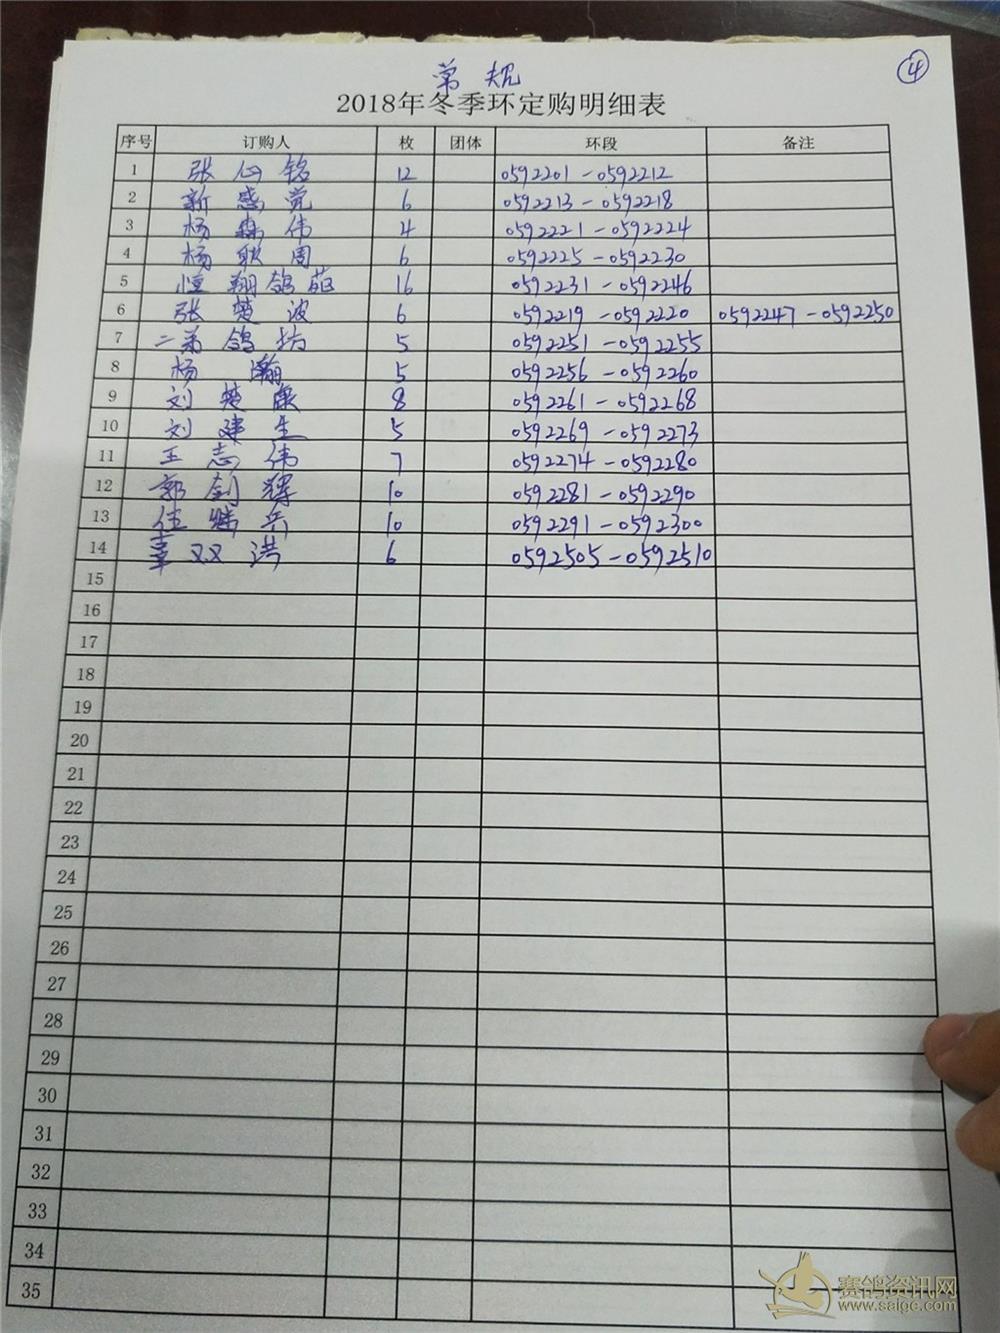 ④
常规
2018年冬季环定购明细表
序号 订购人 枚 团体 环段 备注
1 张心铭 12 0592201-0592212
2 新感觉 6 0592213-0592218
3 杨森伟 4 0592221-0592224
4 杨耿周 6 0592225-0592230
5 恒翔鸽苑 16 0592231-0592246
6 张楚波 6 0592219-0592220 0592247-0592250
7 二弟鸽坊 5 0592251-0592255
8 杨瀚 5 0592256-0592260
9 刘楚康 8 0592261-0592268
10 刘建生 5 0592269-0592273
11 王志伟 7 0592274-0592280
12 郭剑辉 10 0592281-0592290
13 兵 10 0592291-0592300
14 双洪 6 0592505-0592510
15
16
17
18
19
20
21
22
23
24
25
26
27
28
29
30
31
32
33
34
35
赛鸽资讯网
www.saige.com